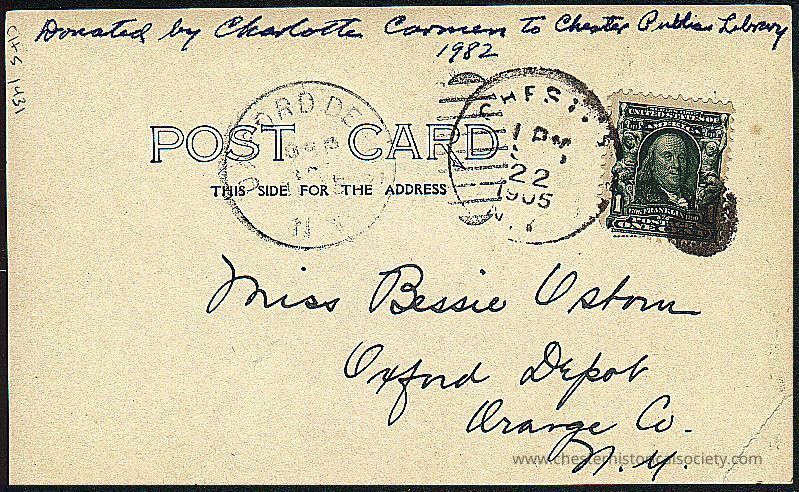 Donated by Charlotte Carmen to Chester Public Library
1982
CHS 1431
POST CARD
THIS SIDE FOR THE ADDRESS
OXFORD DEPOT
N.Y.
CHESTER
1 PM
22
1905
N.Y.
UNITED STATES OF
AMERICA
1
FRANKLIN
ONE CENT
Miss Bessie Osborn
Oxford Depot
Orange Co.
N.Y.
www.chesterhistoricalsociety.com